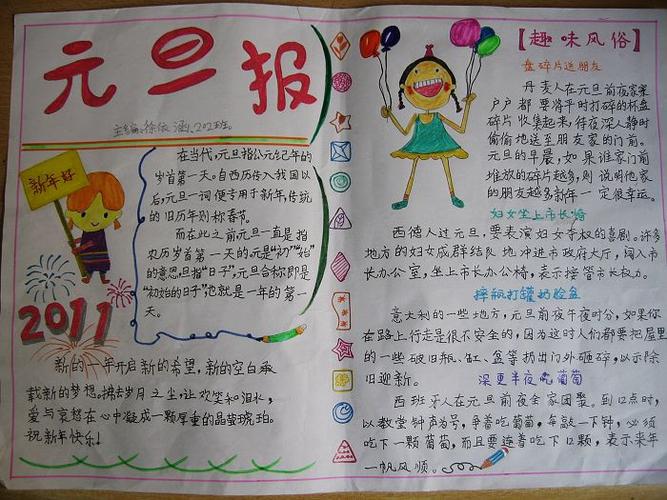 元旦报
主编:徐依涵、202班。
新年好
在当代,元旦指公元纪年的
岁首第一天。自西历传入我国以
后,元旦一词便专用于新年,传统
的旧历年则称春节。
而在此之前元旦一直是指
农历岁首第一天的元是"初""始"
的意思,旦指"日子",元旦合称即是
"初始的日子"也就是一年的第一
天。
2011
新的一年开启新的希望,新的空白承
载新的梦想。拂去岁月之尘,让欢笑和泪水,
爱与哀愁在心中凝成一颗厚重的晶莹琥珀。
祝新年快乐!
【趣味风俗】
盘碎片送朋友
丹麦人在元旦前夜家家
户户都要将平时打碎的杯盘
碎片收集起来,待夜深人静时
偷偷地送至朋友家的门前。
元旦的早晨,如果谁家门前
堆放的碎片越多,则说明他家
的朋友越多新年一定很幸运。
妇女坐上市长椅
西德人过元旦,要表演妇女夺权的喜剧。许多
地方的妇女成群结队地冲进市政府大厅,闯入市
长办公室,坐上市长办公椅,表示接管市长权力。
摔瓶打罐扔脸盆
意大利的一些地方,元旦前夜午夜时分,如果你
在路上行走是很不安全的,因为这时人们都要把屋里
的一些破旧瓶、缸、盆等扔出门外砸碎,以示除
旧迎新。
深更半夜吃葡萄
西班牙人在元旦前夜全家团聚。到12点时,
以教堂钟声为号,争着吃葡萄,每敲一下钟,必须
吃下一颗葡萄,而且要连着吃下12颗,表示来年
一帆风顺。